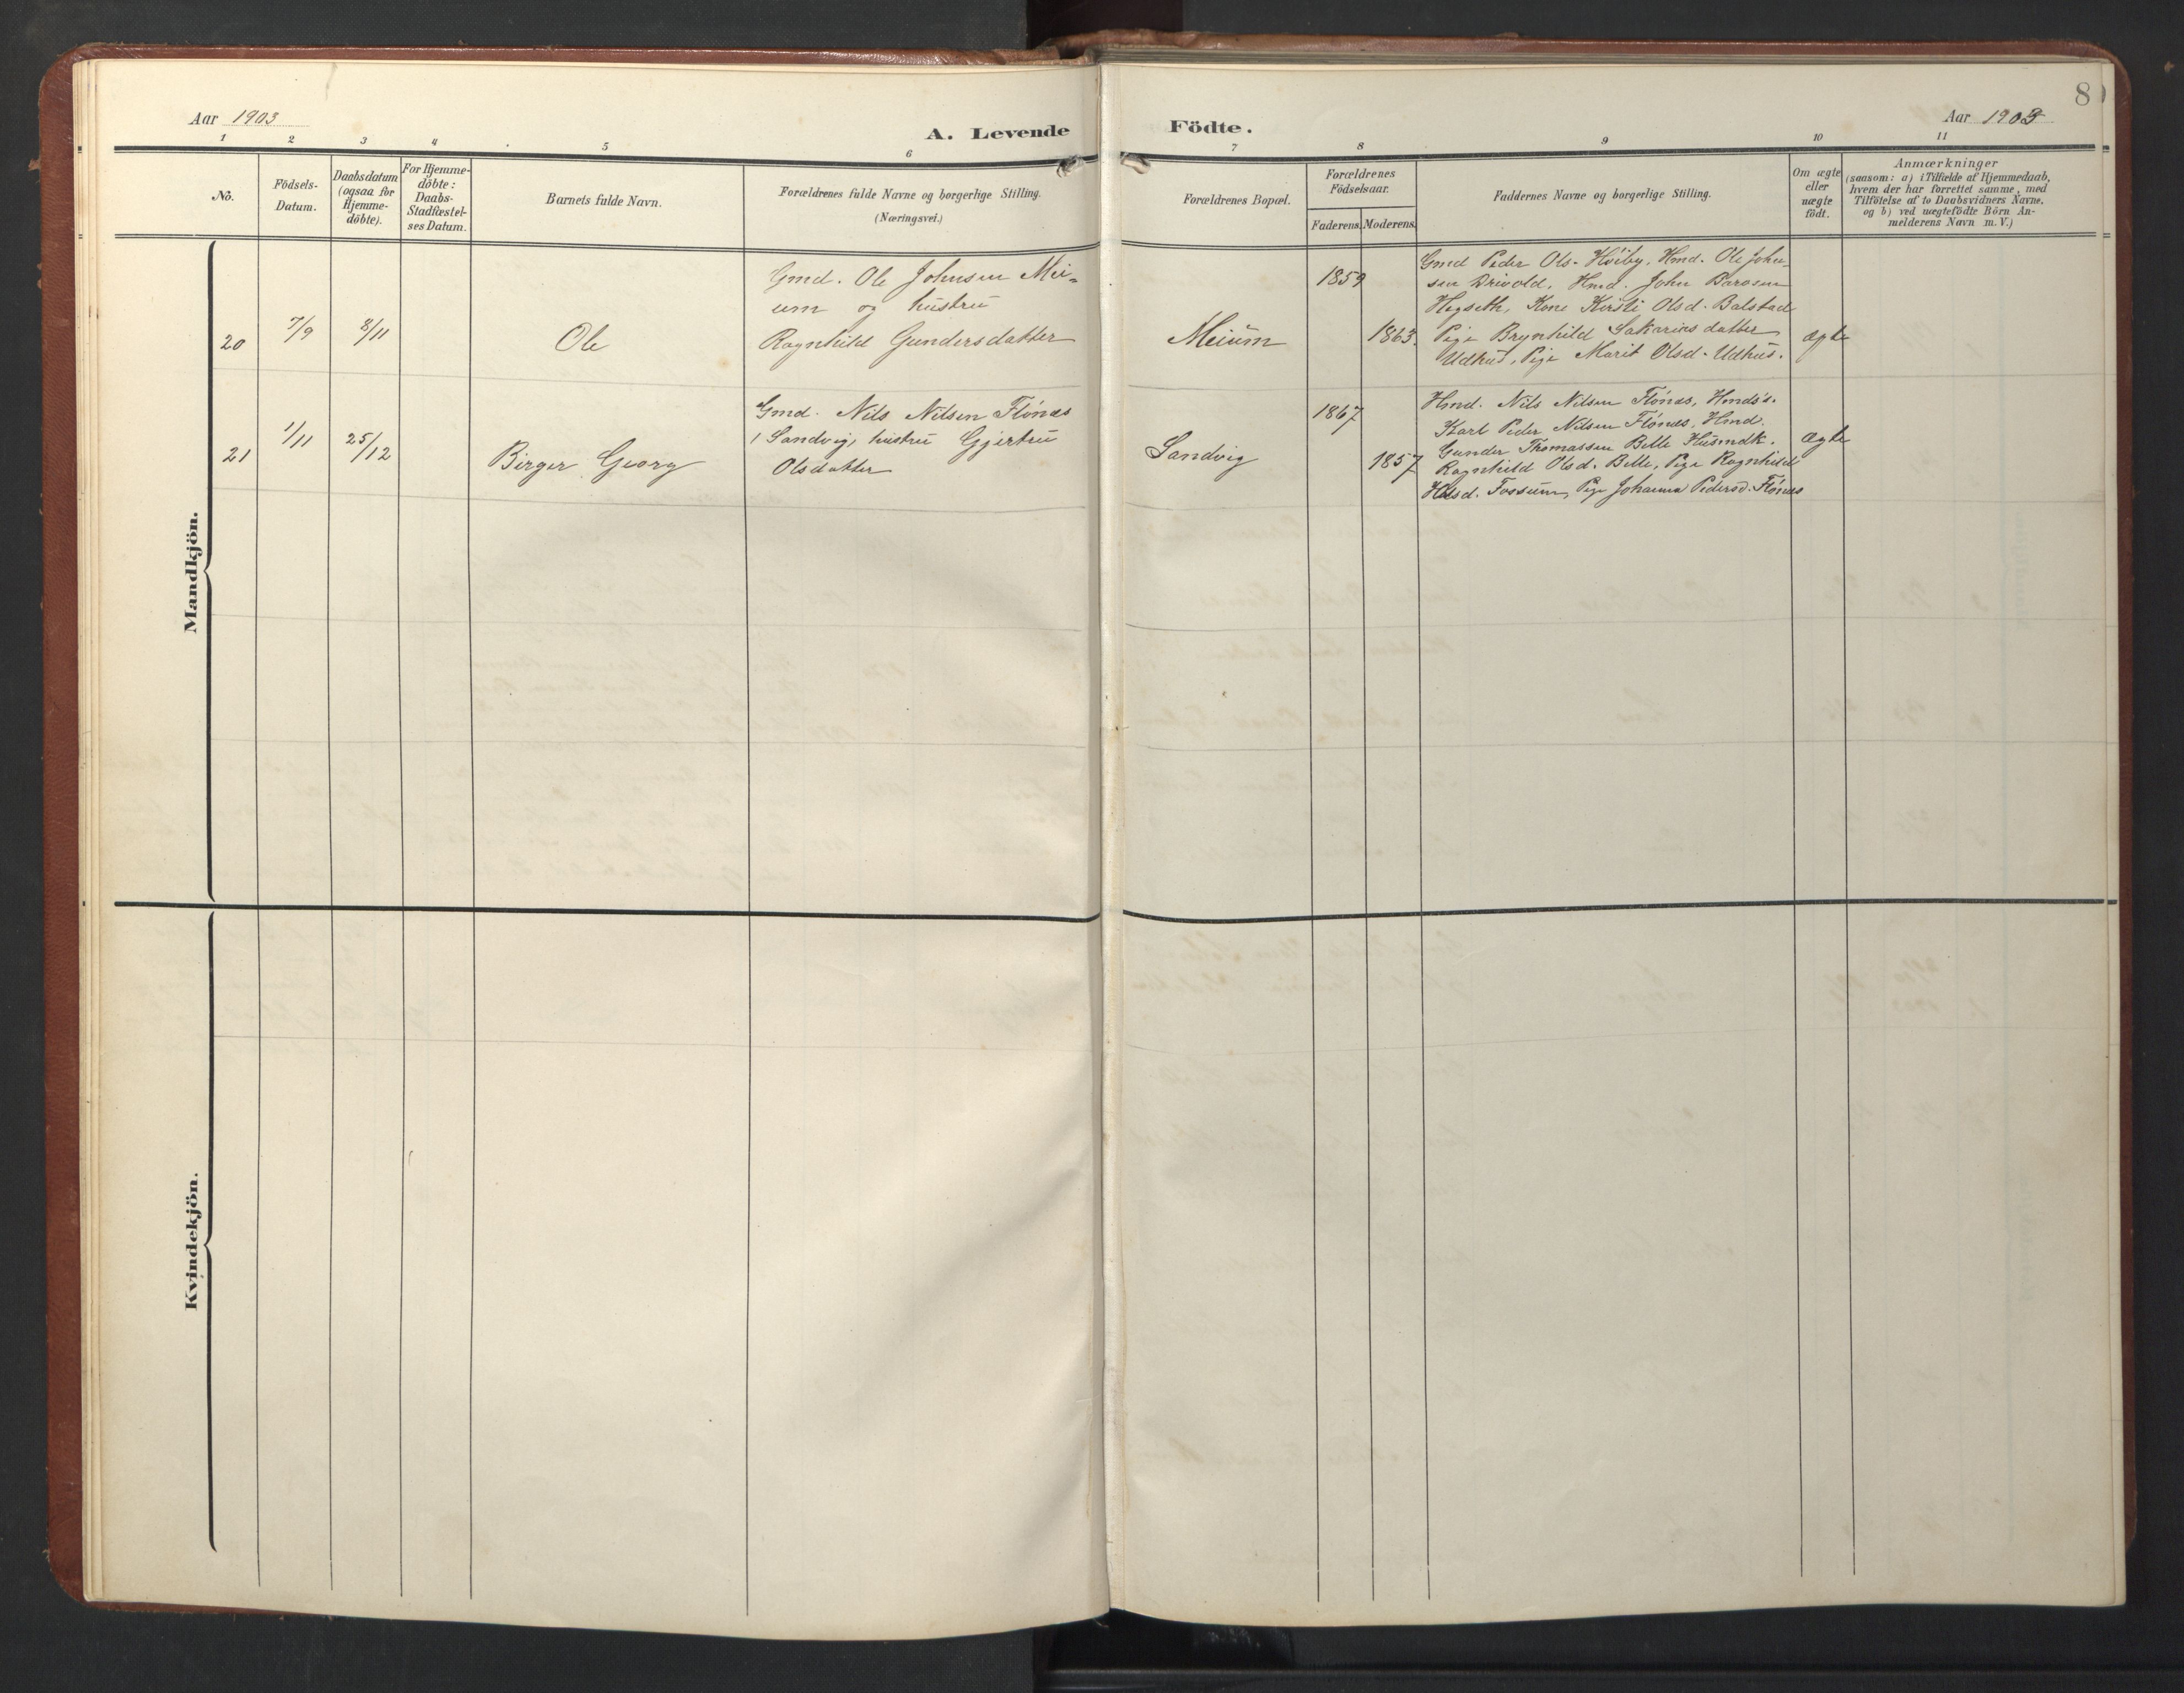 8
Aar 1903
A. Levende Födte.
Aar 1903
1 2 3 4 5 6 7 8 9 10 11
No.
Födsels-
Datum.
Daabsdatum
(ogsaa for
Hjemme-
döbte).
For Hjemme-
döbte:
Daabs-
Stadfæstel-
ses Datum.
Barnets fulde Navn.
Forældrenes fulde Navne og borgerlige Stilling.
(Næringsvei.)
Forældrenes Bopæl.
Forældrenes
Födselsaar.
Faderens. Moderens.
Faddernes Navne og borgerlige Stilling.
Om ægte
eller
uægte
födt.
Anmærkninger
(saasom: a) i Tilfælde af Hjemmedaab,
hvem der har forrettet samme, med
Tilföielse af to Daabsvidners Navne,
og b) ved uægtefödte Börn An-
melderens Navn m. V.)
Mandkjön.
20
7/9
8/11
Ole
Gmd. Ole Johnsen Mei-
um og hustru
Ragnhild Gundersdatter
Meium
1859
1863.
Gmd Peder Ols. Höiby, Hmd. Ole John-
sen Drivold, Hmd. John Barosen
Hegseth, Kone Kirsti Olsd. Balstad
Pige Brynhild Sakariasdatter
Udhus, Pige Marit Olsd. Udhus.
ægte
21
1/11
25/12
Birger Georg
Gmd. Nils Nilsen Flönæs
/ Sandvig, hustru Gjertru
Olsdatter
Sandvig
1867
1857
Hmd. Nils Nilsen Flönæs, Hmds's.
Karl Peder Nilsen Flönæs, Hmd.
Gunder Thomassen Belle Husmdk.
Ragnhild Olsd. Belle, Pige Ragnhild
Olsd. Fossum, Pige Johanna Pedersd. Flönæs
ægte
Kvindekjön.